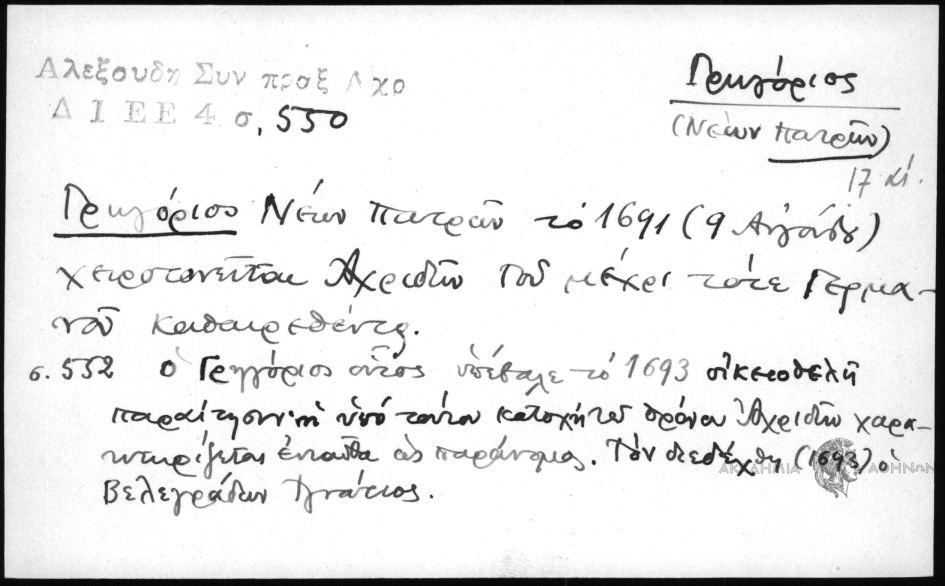 Αλεξουδη Συν πραξ Αχρ
Δ Ι Ε Ε 4 σ, 550
Γρηγόριος
(Νέων Πατρῶν)
17 αἰ.
Γρηγόριος Νέων Πατρῶν τὸ 1691 (9 Αὐγούστου)
χειροτονεῖται Ἀχριδῶν τοῦ μέχρι τότε Γερμα-
νοῦ καθαιρεθέντος.
σ. 552 ὁ Γρηγόριος οὗτος ὑπέβαλε τὸ 1693 οἰκειοθελῆ
παραίτησιν· ἡ ὑπό τούτου κατοχὴ τοῦ θρόνου Ἀχριδῶν χαρα-
κτηρίζεται ἐνταῦθα ὡς παράνομος. Τὸν διεδέχθη (1693) ὁ
Βελεγράδων Ἰγνάτιος.
ΑΚΑΔΗΜΙΑ ΑΘΗΝΩΝ